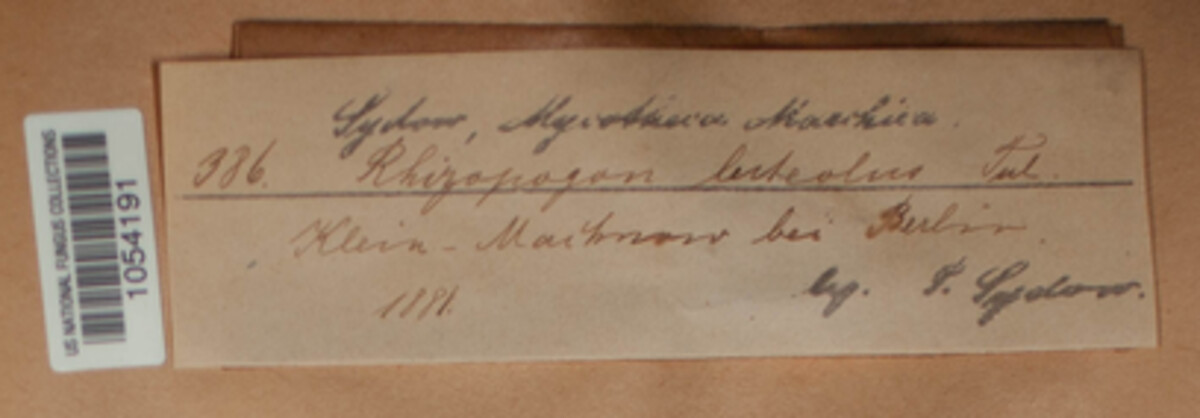 Sydow, Mycotheca Marchica.
386. Rhizopogon luteolus Tul.
Klein-Machnow bei Berlin.
1881.
leg. P. Sydow.
US NATIONAL FUNGUS COLLECTIONS
1054191